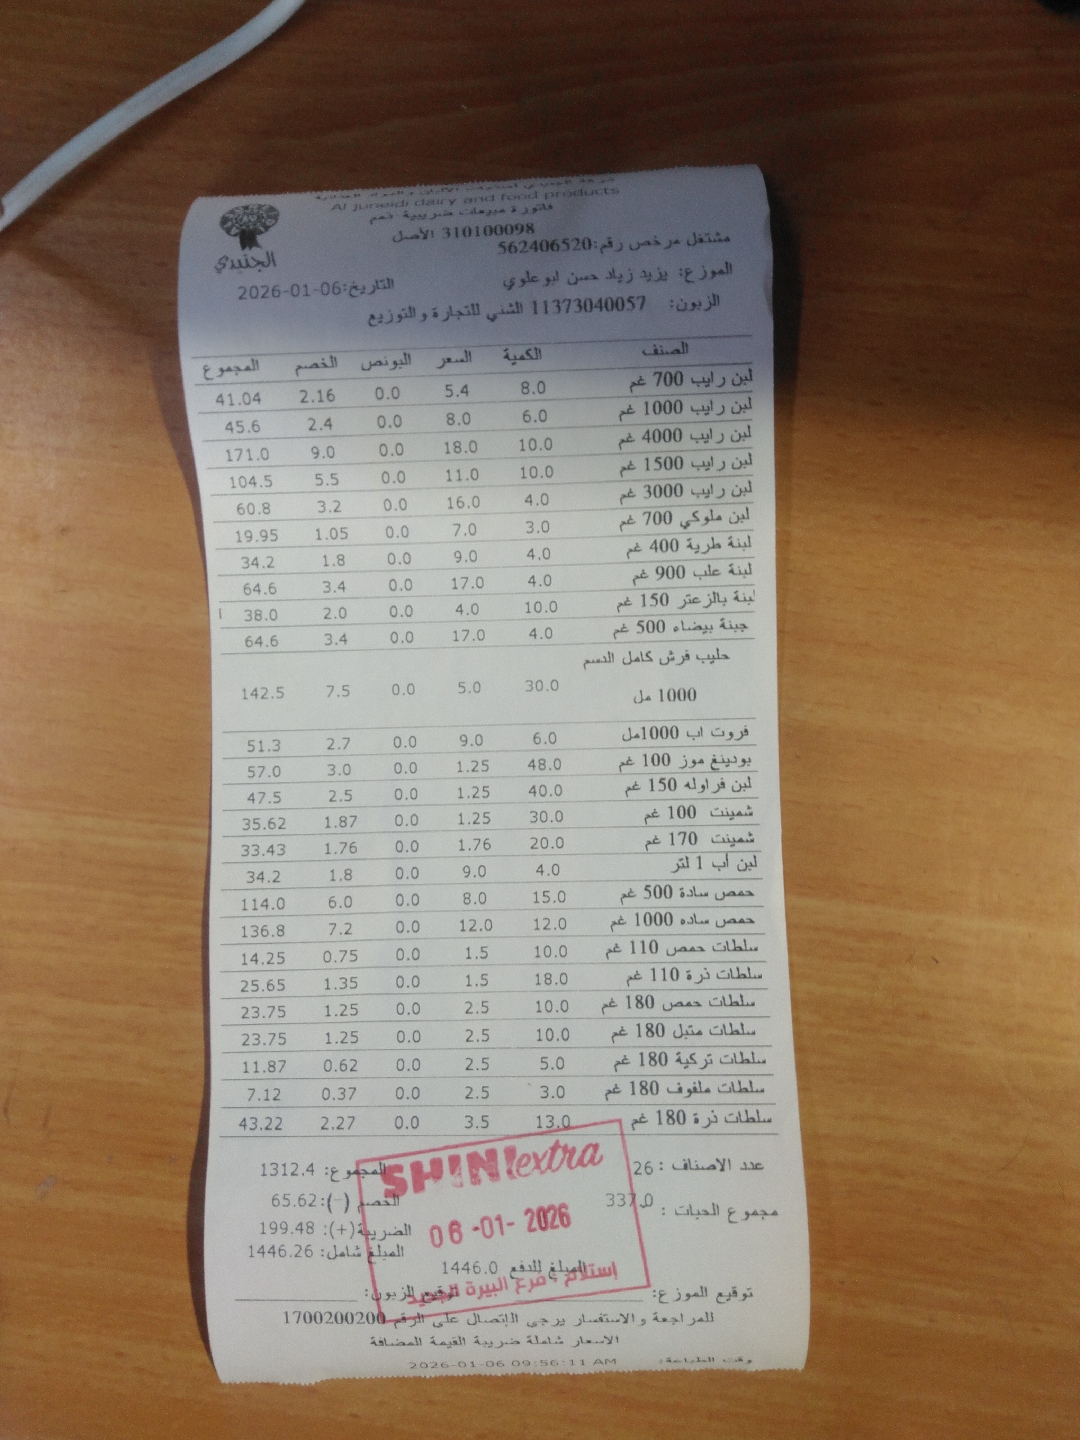 Al juneidi dairy and food products
فاتورة مبيعات ضريبية ذمم
310100098 الأصل
الجنيدي
مشتغل مرخص رقم:562406520
الموزع: يزيد زياد حسن ابو علوي
التاريخ:2026-01-06
الزبون: 11373040057 الشني للتجارة والتوزيع
الصنف الكمية السعر البونص الخصم المجموع
لبن رايب 700 غم 8.0 5.4 0.0 2.16 41.04
لبن رايب 1000 غم 6.0 8.0 0.0 2.4 45.6
لبن رايب 4000 غم 10.0 18.0 0.0 9.0 171.0
لبن رايب 1500 غم 10.0 11.0 0.0 5.5 104.5
لبن رايب 3000 غم 4.0 16.0 0.0 3.2 60.8
لبن ملوكي 700 غم 3.0 7.0 0.0 1.05 19.95
لبنة طرية 400 غم 4.0 9.0 0.0 1.8 34.2
لبنة علب 900 غم 4.0 17.0 0.0 3.4 64.6
لبنة بالزعتر 150 غم 10.0 4.0 0.0 2.0 38.0
جبنة بيضاء 500 غم 4.0 17.0 0.0 3.4 64.6
حليب فرش كامل الدسم
1000 مل 30.0 5.0 0.0 7.5 142.5
فروت اب 1000مل 6.0 9.0 0.0 2.7 51.3
بودينغ موز 100 غم 48.0 1.25 0.0 3.0 57.0
لبن فراوله 150 غم 40.0 1.25 0.0 2.5 47.5
شمينت 100 غم 30.0 1.25 0.0 1.87 35.62
شمينت 170 غم 20.0 1.76 0.0 1.76 33.43
لبن أب 1 لتر 4.0 9.0 0.0 1.8 34.2
حمص سادة 500 غم 15.0 8.0 0.0 6.0 114.0
حمص ساده 1000 غم 12.0 12.0 0.0 7.2 136.8
سلطات حمص 110 غم 10.0 1.5 0.0 0.75 14.25
سلطات ذرة 110 غم 18.0 1.5 0.0 1.35 25.65
سلطات حمص 180 غم 10.0 2.5 0.0 1.25 23.75
سلطات متبل 180 غم 10.0 2.5 0.0 1.25 23.75
سلطات تركية 180 غم 5.0 2.5 0.0 0.62 11.87
سلطات ملفوف 180 غم 3.0 2.5 0.0 0.37 7.12
سلطات ذرة 180 غم 13.0 3.5 0.0 2.27 43.22
عدد الاصناف : 26
المجموع: 1312.4
مجموع الحبات : 337.0
الخصم (-):65.62
الضريبة(+): 199.48
المبلغ شامل: 1446.26
المبلغ للدفع 1446.0
SHINI extra
06 -01- 2026
استلام - فرع البيرة الجديد
توقيع الموزع:
توقيع الزبون:
للمراجعة والاستفسار يرجى الإتصال على الرقم 1700200200
الاسعار شاملة ضريبة القيمة المضافة
وقت الطباعة: 2026-01-06 09:56:11 AM